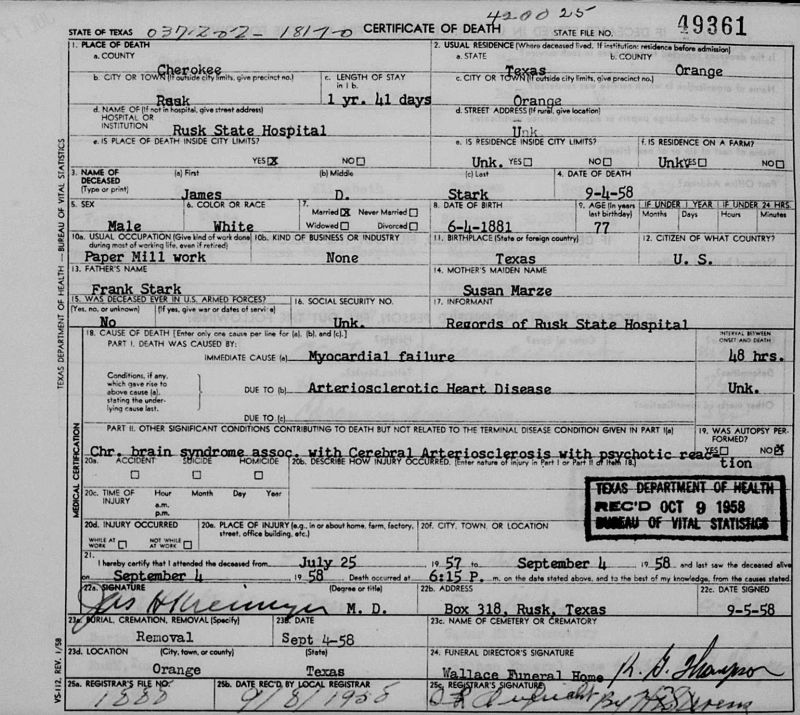 420025
STATE OF TEXAS 037-202-1817-0 CERTIFICATE OF DEATH STATE FILE NO. 49361
1. PLACE OF DEATH
a. COUNTY
Cherokee
2. USUAL RESIDENCE (Where deceased lived. If institution: residence before admission)
a. STATE b. COUNTY
Texas Orange
b. CITY OR TOWN (If outside city limits, give precinct no.)
Rusk
c. LENGTH OF STAY
in 1 b.
1 yr. 41 days
c. CITY OR TOWN (If outside city limits, give precinct no.)
Orange
d. NAME OF (If not in hospital, give street address)
HOSPITAL OR
INSTITUTION Rusk State Hospital
d. STREET ADDRESS (If rural, give location)
Unk
e. IS PLACE OF DEATH INSIDE CITY LIMITS?
YES NO
e. IS RESIDENCE INSIDE CITY LIMITS?
Unk. YES NO
f. IS RESIDENCE ON A FARM?
Unk YES NO
3. NAME OF
DECEASED
(Type or print)
(a) First (b) Middle (c) Last
James D. Stark
4. DATE OF DEATH
9-4-58
5. SEX
Male
6. COLOR OR RACE
White
7.
Married Never Married
Widowed Divorced
8. DATE OF BIRTH
6-4-1881
9. AGE (In years
last birthday)
77
IF UNDER 1 YEAR IF UNDER 24 HRS.
Months Days Hours Minutes
10a. USUAL OCCUPATION (Give kind of work done
during most of working life, even if retired)
Paper Mill work
10b. KIND OF BUSINESS OR INDUSTRY
None
11. BIRTHPLACE (State or foreign country)
Texas
12. CITIZEN OF WHAT COUNTRY?
U. S.
13. FATHER'S NAME
Frank Stark
14. MOTHER'S MAIDEN NAME
Susan Marze
15. WAS DECEASED EVER IN U.S. ARMED FORCES?
(Yes, no, or unknown) (If yes, give war or dates of service)
No
16. SOCIAL SECURITY NO.
Unk.
17. INFORMANT
Records of Rusk State Hospital
18. CAUSE OF DEATH [Enter only one cause per line for (a), (b), and (c).]
PART I. DEATH WAS CAUSED BY:
INTERVAL BETWEEN
ONSET AND DEATH
IMMEDIATE CAUSE (a) Myocardial failure 48 hrs.
Conditions, if any,
which gave rise to
above cause (a),
stating the under-
lying cause last.
DUE TO (b) Arteriosclerotic Heart Disease Unk.
DUE TO (c)
PART II. OTHER SIGNIFICANT CONDITIONS CONTRIBUTING TO DEATH BUT NOT RELATED TO THE TERMINAL DISEASE CONDITION GIVEN IN PART I(a)
Chr. brain syndrome assoc. with Cerebral Arteriosclerosis with psychotic reac-
tion
19. WAS AUTOPSY PER-
FORMED?
YES NO
20a. ACCIDENT SUICIDE HOMICIDE
20b. DESCRIBE HOW INJURY OCCURRED. (Enter nature of injury in Part I or Part II of Item 18.)
20c. TIME OF
INJURY
Hour Month Day Year
a.m.
p.m.
TEXAS DEPARTMENT OF HEALTH
REC'D OCT 9 1958
BUREAU OF VITAL STATISTICS
20d. INJURY OCCURRED
WHILE AT
WORK
NOT WHILE
AT WORK
20e. PLACE OF INJURY (e.g., in or about home, farm, factory,
street, office building, etc.)
20f. CITY, TOWN, OR LOCATION
21.
I hereby certify that I attended the deceased from July 25 1957 to September 4 1958 and last saw the deceased alive
on September 4 1958 Death occurred at 6:15 P. m. on the date stated above, and to the best of my knowledge, from the causes stated.
22a. SIGNATURE (Degree or title)
M. D.
22b. ADDRESS
Box 318, Rusk, Texas
22c. DATE SIGNED
9-5-58
23a. BURIAL, CREMATION, REMOVAL (Specify)
Removal
23b. DATE
Sept 4-58
23c. NAME OF CEMETERY OR CREMATORY
23d. LOCATION (City, town, or county) (State)
Orange Texas
24. FUNERAL DIRECTOR'S SIGNATURE
Wallace Funeral Home R. G. Thompson
25a. REGISTRAR'S FILE NO.
1880
25b. DATE REC'D BY LOCAL REGISTRAR
9/8/1958
25c. REGISTRAR'S SIGNATURE
TEXAS DEPARTMENT OF HEALTH — BUREAU OF VITAL STATISTICS
MEDICAL CERTIFICATION
VS-112. REV. 1/58